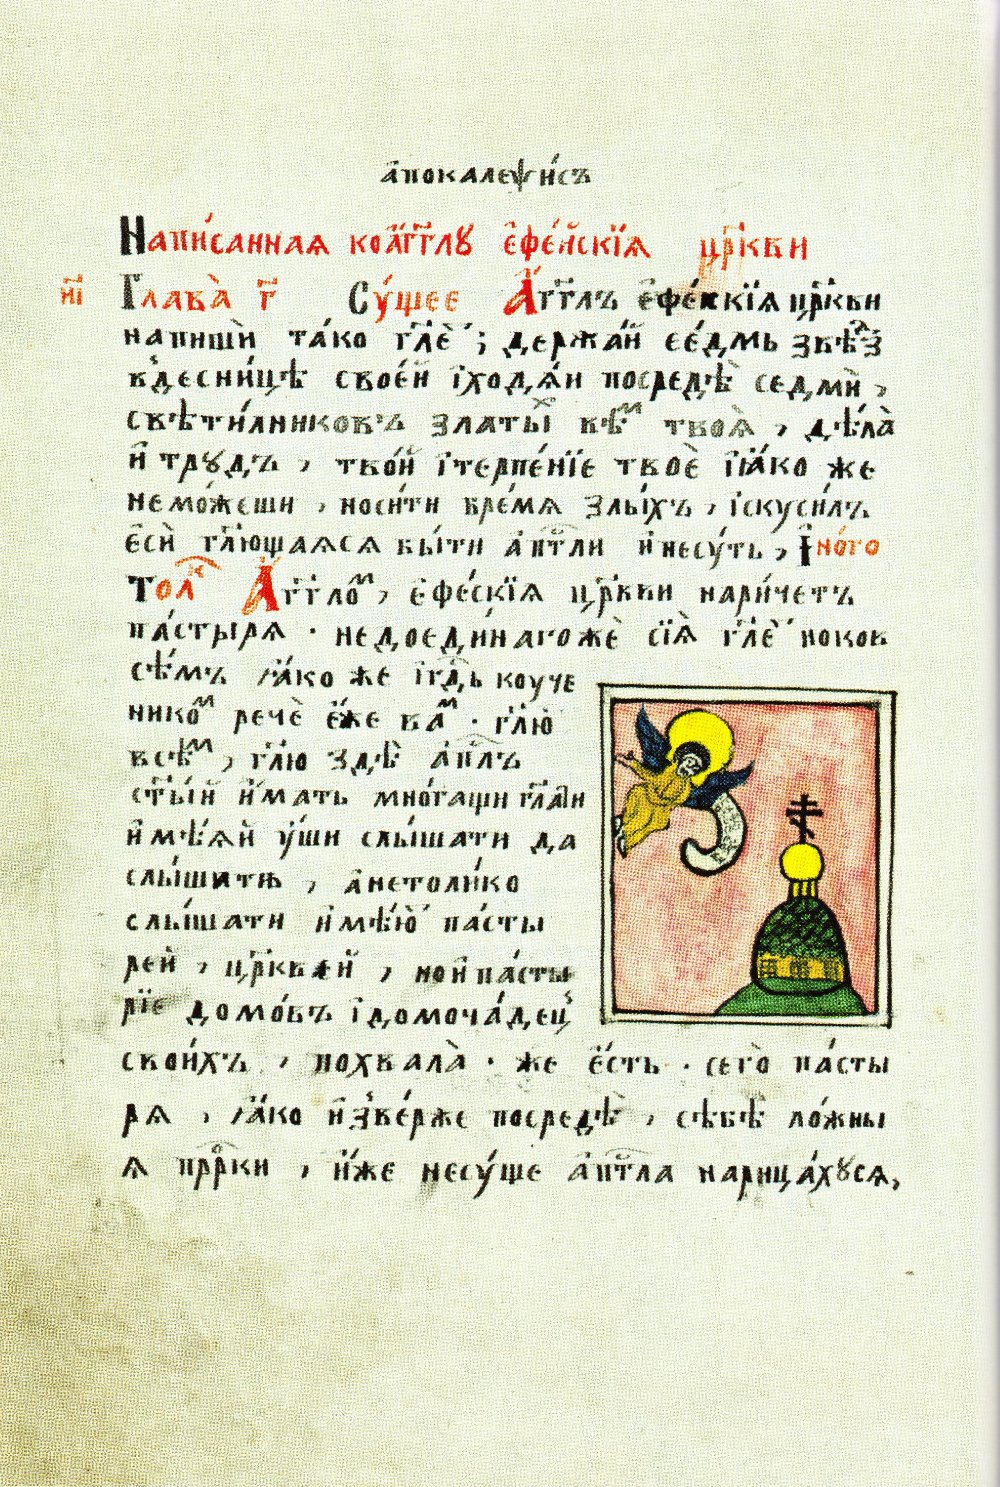 а҆покалеѱи́съ
Напи́санная коа҆́гг҃лꙋ е҆фе́йскїѧ цр҃кви
и҃і Глава̀ г҃ Су́щее А҆́гг҃лъ е҆фе́скїѧ цр҃кви
напишѝ та́ко гл҃ѐ ; держа́й се́дмь ѕвѣ́з
вдесни́цѣ своє́й і҆ходѧ́и посредѣ̀ седмѝ ,
свѣти́лниковъ златы́х вѣ́м твоѧ̀ , дѣ́ла̀
и҆ трꙋдъ , тво́й і҆терпе́нїе твоѐ і҆ꙗ҆́ко же
немо́жеши , носи́ти бре́мѧ злы́хъ , і҆скуси́лъ
е҆сѝ гл҃ющаѧсѧ бы́ти а҆п҃тли и҆несу́ть , І҆но́го
тол҇к А҆́гг҃лом , е҆фе́скїѧ цр҃кви нари́четъ
па́стырѧ · недоеди́нагожѐ сїѧ̀ гл҃ѐ ноков
сѣ́мъ ꙗ҆́ко же і҆гд҃ь коуче
нико́м речѐ е҆́же ва́м · гл҃ю
всѣ́м , гл҃ю здѣ̀ а҆п҃лъ
ст҃ы́й и҆́мать мно́гащи гл҃аи
и҆мѣ́ѧй у҆́ши слы́шати да
слы́шитъ , а҆нетоли́ко
слы́шати и҆мѣ́ю па́сты
рей , цр҃квей , нои҆па́сты
рїе домо́въ і҆домоча́дец
свои́хъ , похвала̀ · же е҆́сть · сего̀ па́сты
рѧ , ꙗ҆́ко и҆зве́рже посредѣ̀ , сѣбѣ̀ ло́жны
ѧ пр҃рки , и҆́же несу́ще а҆п҃тла нарица́хꙋсѧ,